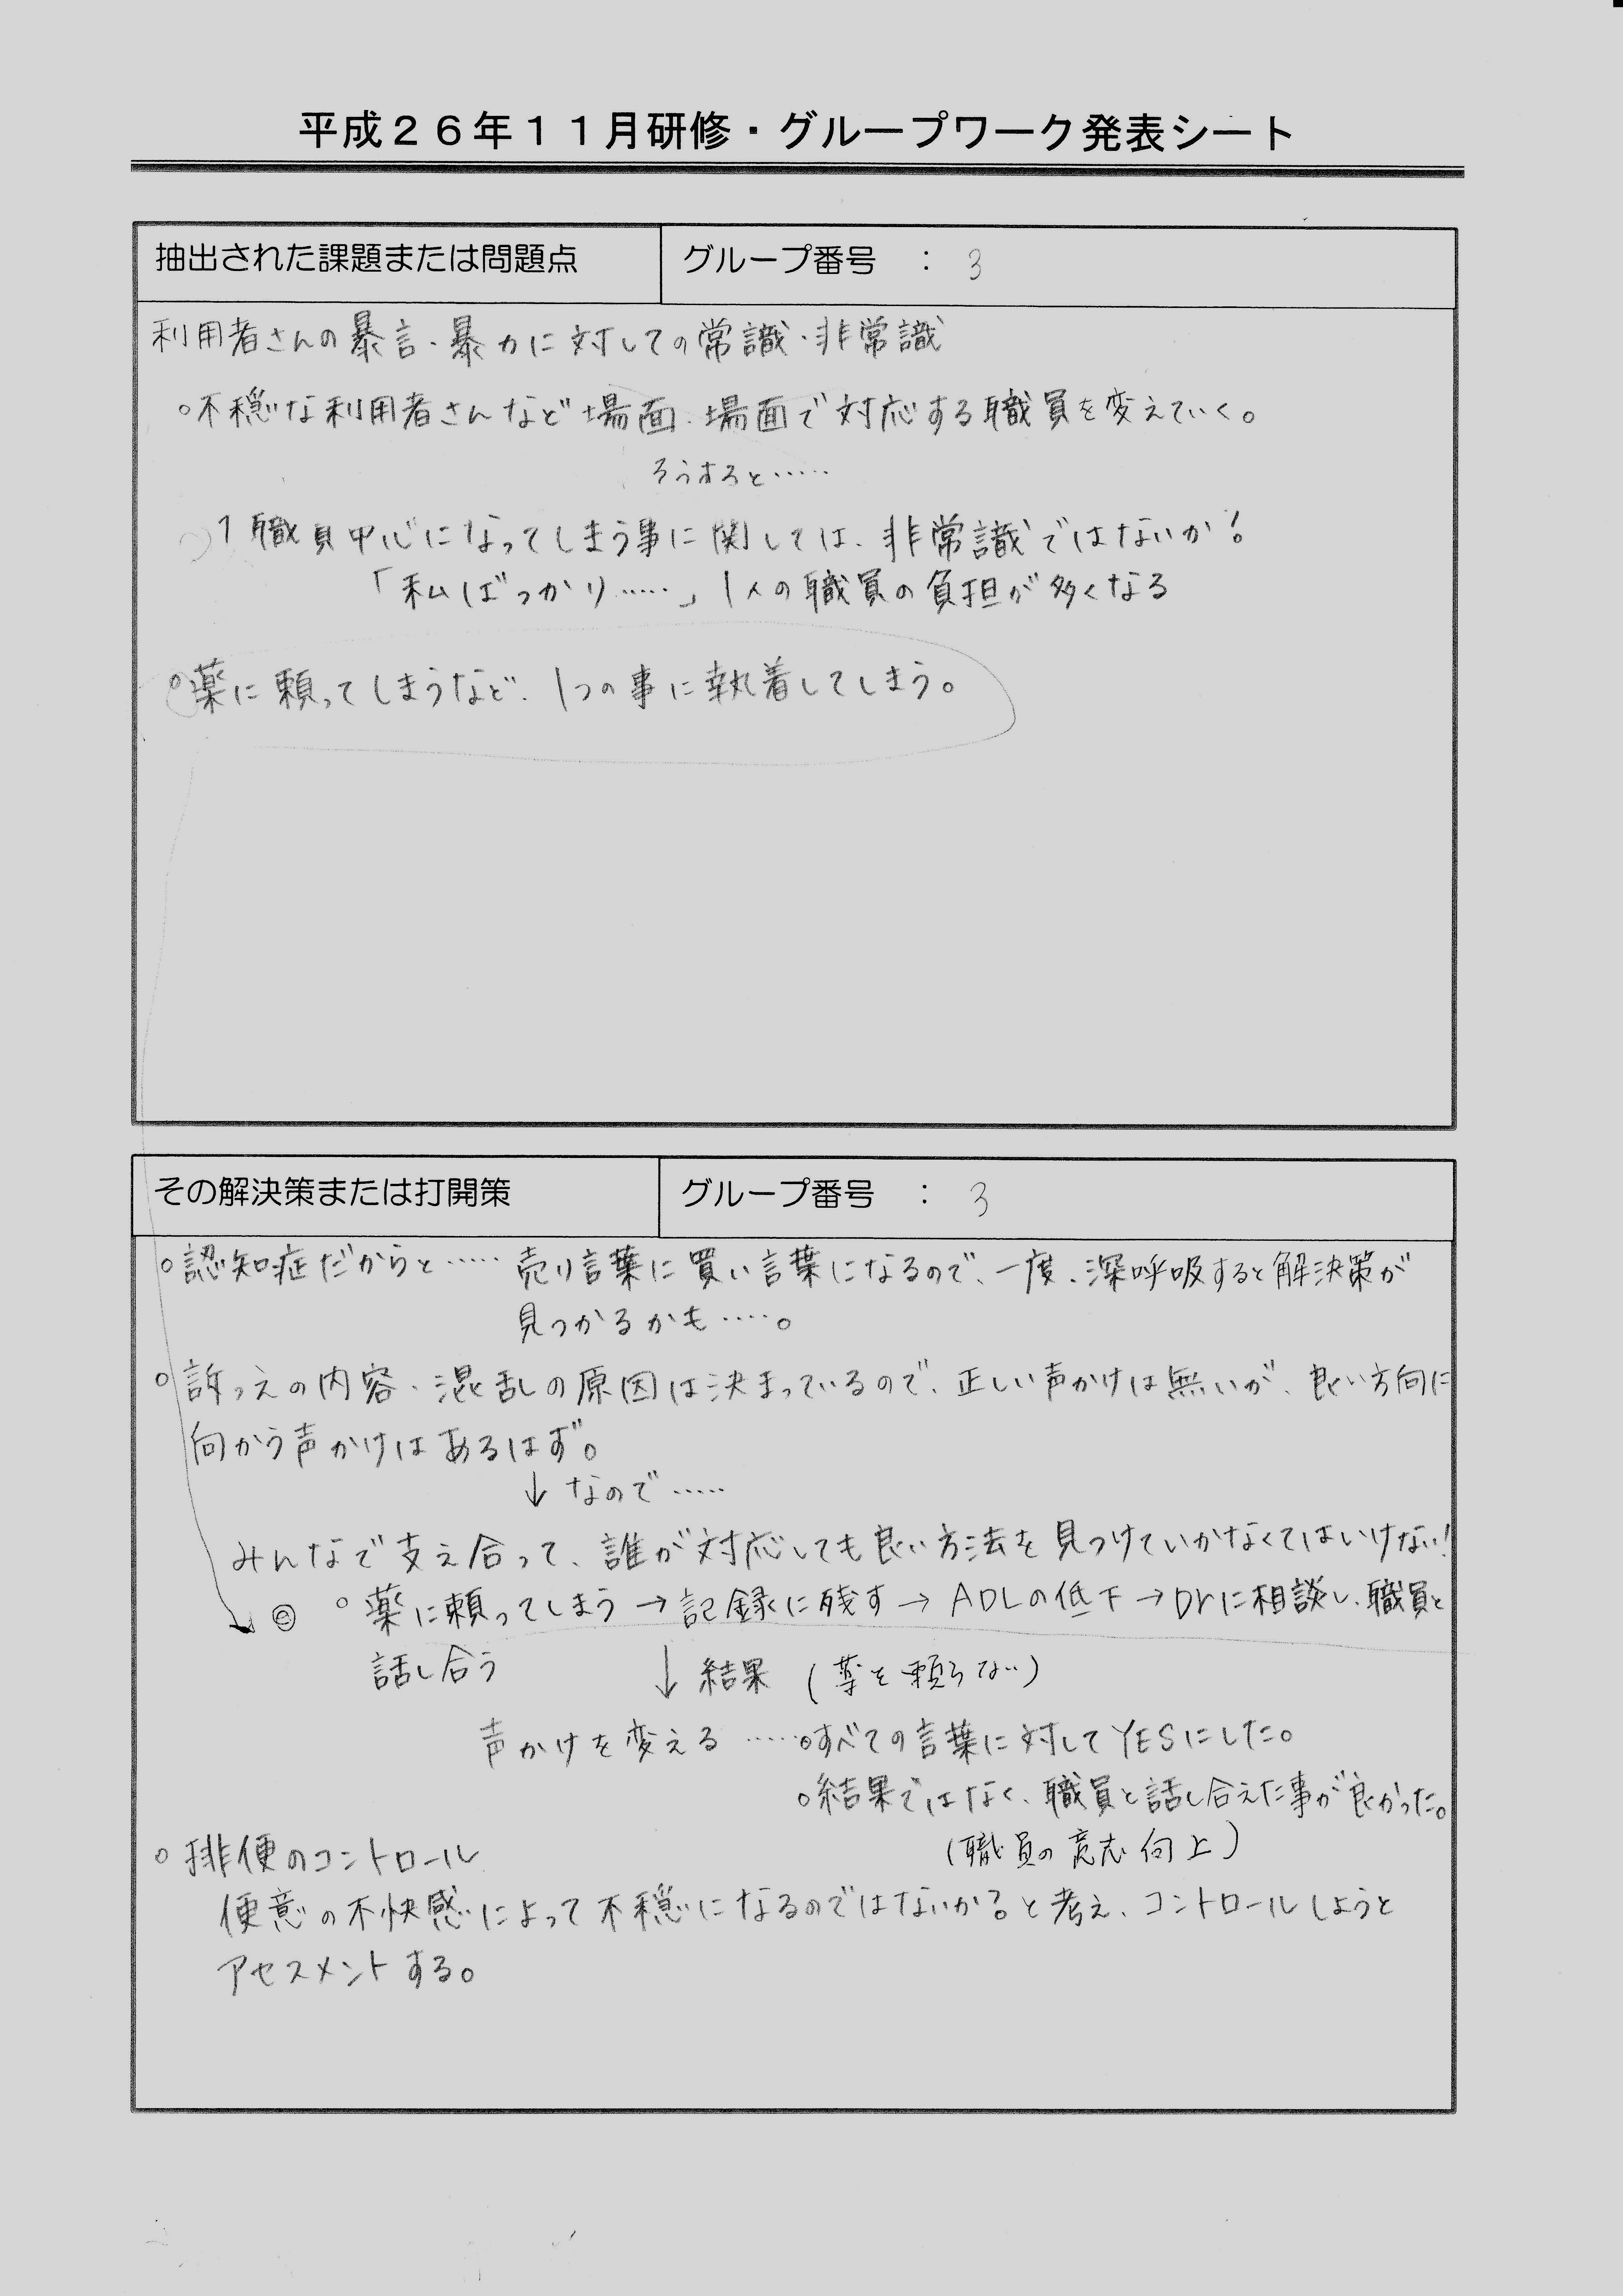 平成26年11月研修・グループワーク発表シート
抽出された課題または問題点
グループ番号 : 3
利用者さんの暴言・暴力に対しての常識・非常識
○不穏な利用者さんなど場面、場面で対応する職員を変えていく。
そうすると……
1職員中心になってしまう事に関しては、非常識ではないか?
「私ばっかり……」1人の職員の負担が多くなる
○薬に頼ってしまうなど、1つの事に執着してしまう。
その解決策または打開策
グループ番号 : 3
○認知症だからと……売り言葉に買い言葉になるので、一度、深呼吸すると解決策が
見つかるかも……。
○訴っえの内容・混乱の原因は決まっているので、正しい声かけは無いが、良い方向に
向かう声かけはあるはず。
↓なので……
みんなで支え合って、誰が対応しても良い方法を見つけていかなくてはいけない!
○薬に頼ってしまう→記録に残す→ADLの低下→Drに相談し、職員と
話し合う
↓結果(薬を頼らない)
声かけを変える……○すべての言葉に対してYESにした。
○結果ではなく、職員と話し合えた事が良かった。
(職員の意志向上)
○排便のコントロール
便意の不快感によって不穏になるのではないか?と考え、コントロールしようと
アセスメントする。